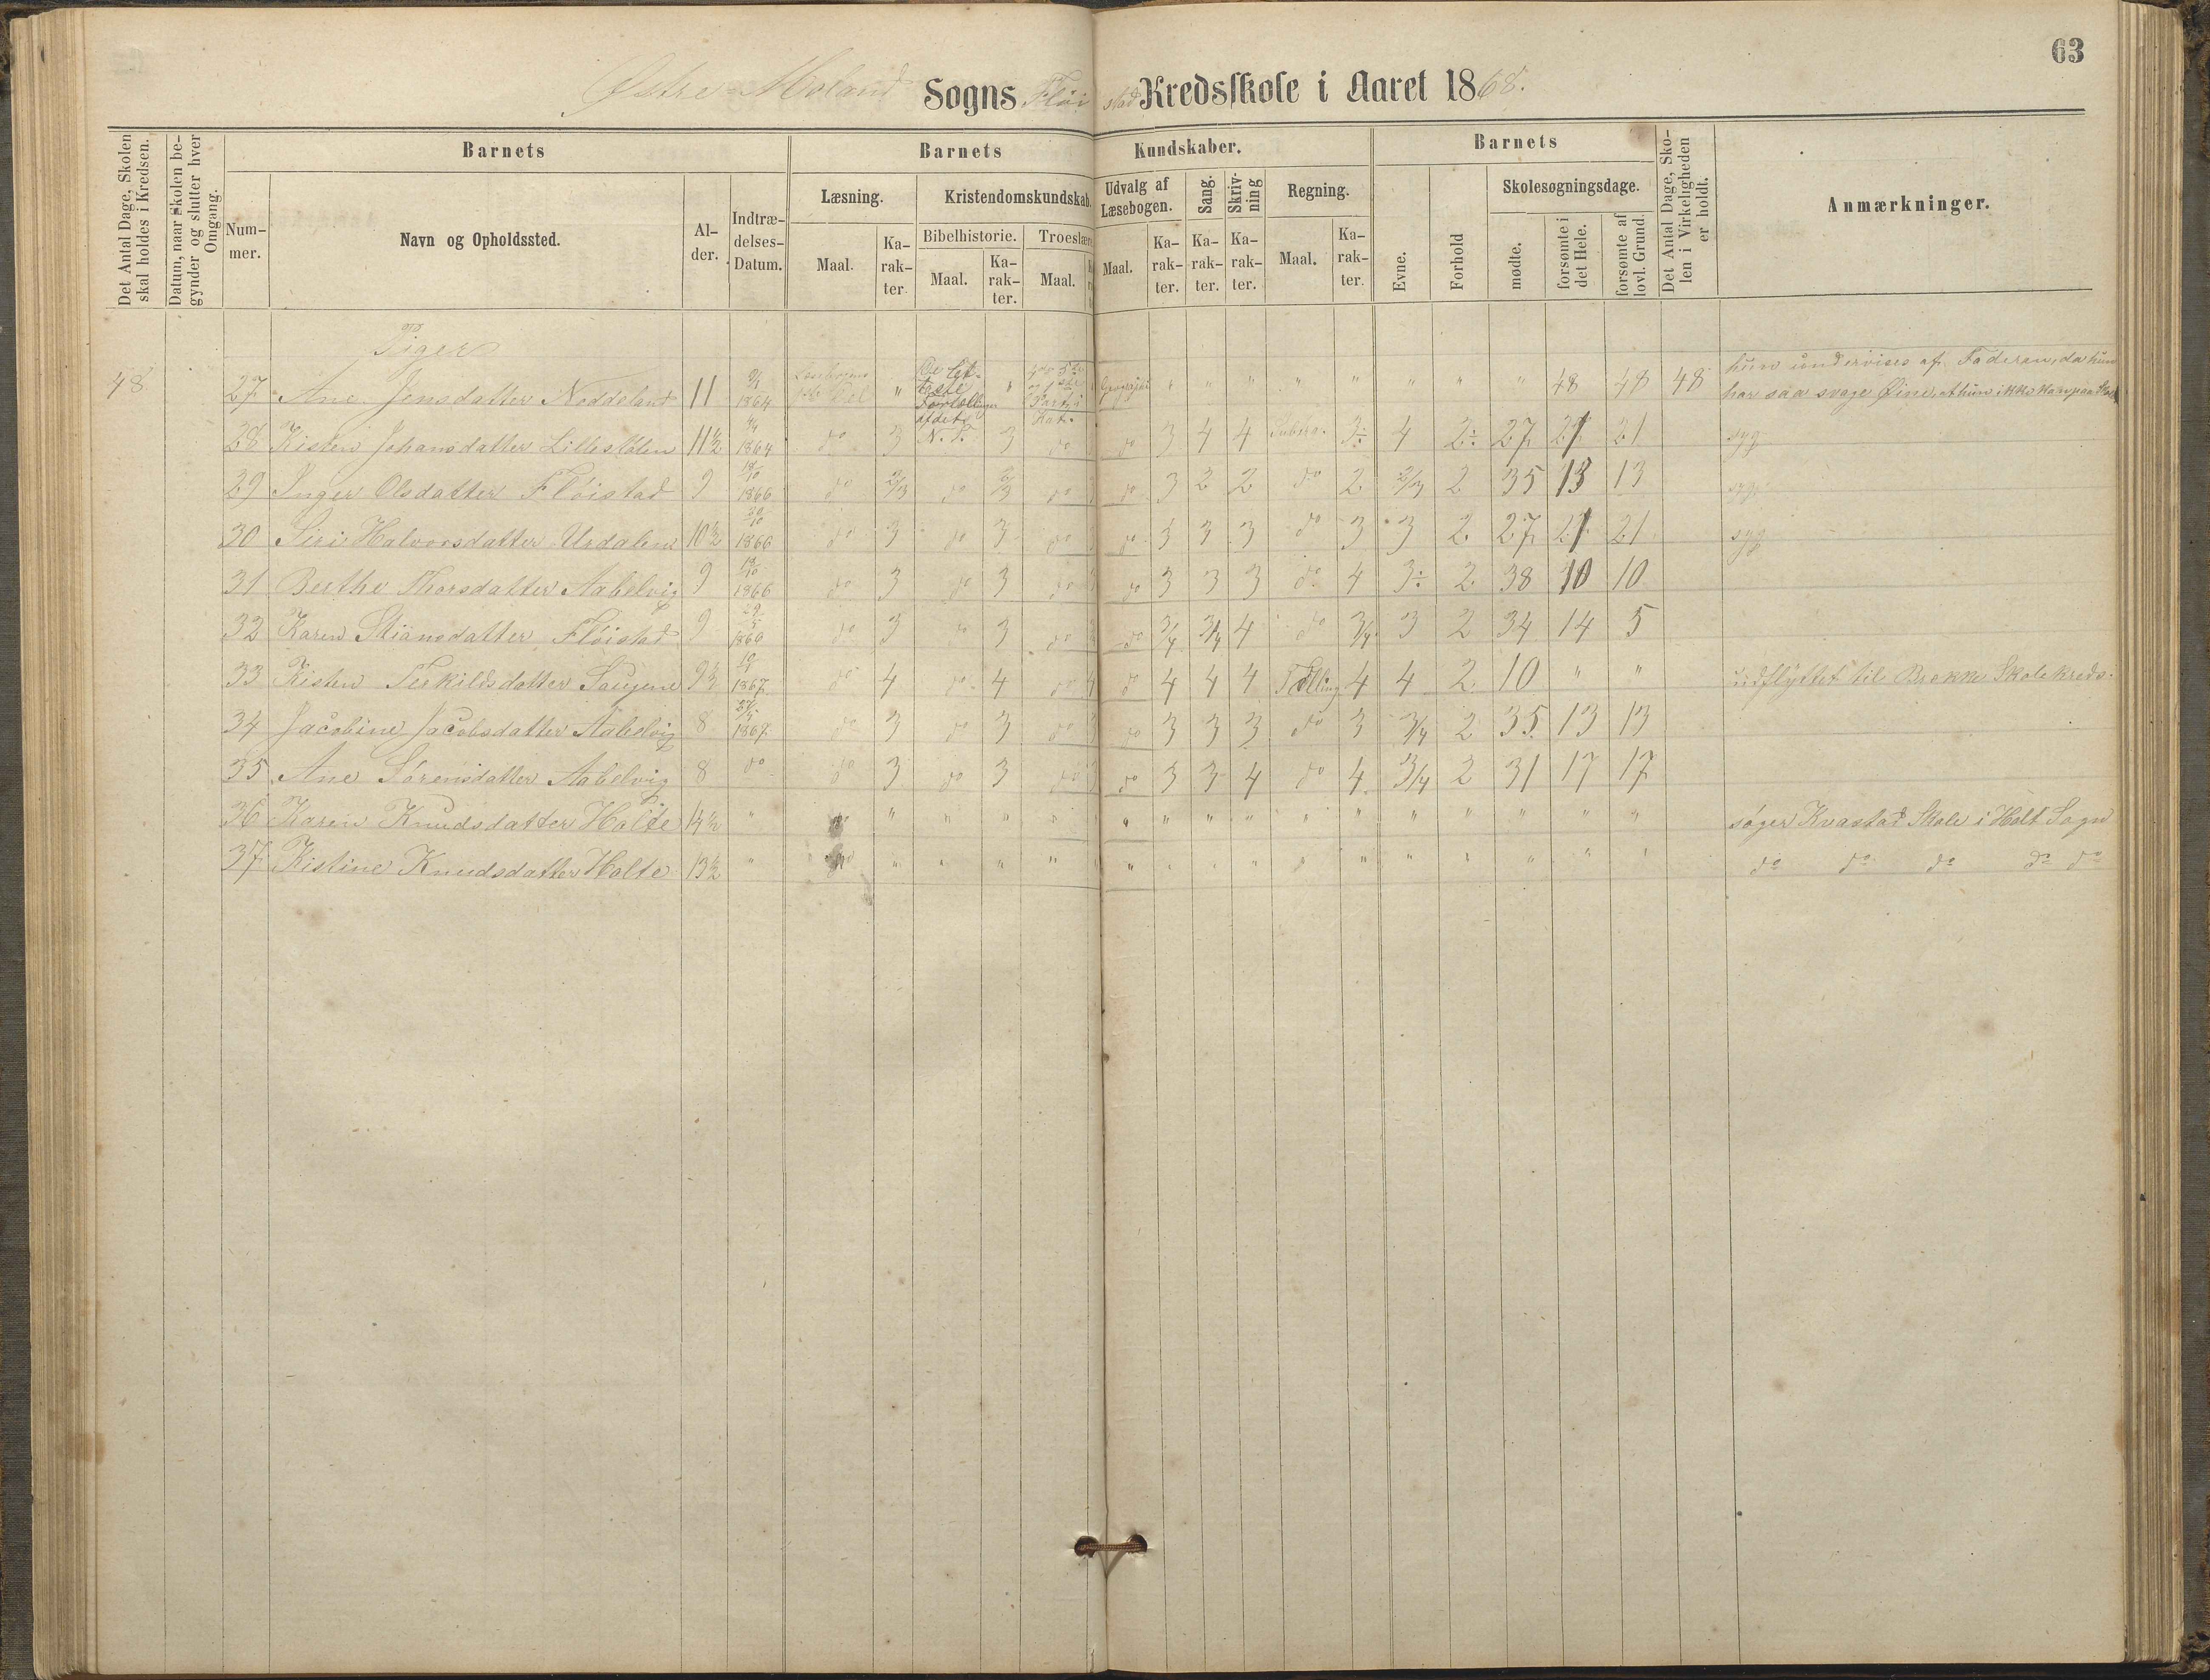 63
Østre-Moland Sogns Flöi stad Kredsskole i Aaret 1868.
Det Antal Dage, Skolen skal holdes i Kredsen.
Datum, naar Skolen begynder og slutter hver Omgang.
Barnets
Nummer.
Navn og Opholdssted.
Alder.
Indtrædelses-Datum.
Barnets Kundskaber.
Læsning.
Maal.
Karakter
Kristendomskundskab.
Bibelhistorie.
Maal.
Karakter.
Troeslære
Maal.
Udvalg af Læsebogen.
Maal.
Karakter.
Sang.
Karakter.
Skrivning
Karakter.
Regning.
Maal.
Karakter.
Barnets
Evne.
Forhold
Skolesøgningsdage.
mødte.
forsømte i det Hele.
forsømte af lovl. Grund.
Det Antal Dage, Skolen i Virkeligheden er holdt.
Anmærkninger.
Piger
48 27 Ane Jensdatter Noddeland 11 1864 " " " " " " " " " " 48 48 48 hun undervises af Faderen, da hun har saa svage Øine, at hun ikke kan paa Skole
28 Kisten Johansdatter Lillesölen 11½ 1864 do 3 N. T. 3 do do 3 4 4 3÷ 4 2÷ 27 21 21 syg
29 Inger Olsdatter Flöistad 9 18/10 1866 do 2/3 do 2/3 do do 3 2 2 do 2 2/3 2 35 13 13 syg
30 Siri Halvorsdatter Urdalen 10½ 1866 do 3 do 3 do do 3 3 3 do 3 3 2 27 21 21 syg
31 Berthe Thorsdatter Aabelvig 9 1866 do 3 do 3 do do 3 3 3 do 4 3÷ 2 38 10 10
32 Karen Stiansdatter Flöistad 9 do 3 do 3 do do 3/4 3/4 4 do 3/4 3 2 34 14 5
33 Kisten Terkildsdatter Saugene 9½ 1867 do 4 do 4 do 4 do 4 4 4 Tælling 4 4 2 10 " " udflyttet til Brekke Skolekreds.
34 Jacobine Jacobsdatter Aabelvig 8 1867 do 3 do 3 do 3 do 3 3 3 do 3 3/4 2 35 13 13
35 Ane Sörensdatter Aabelvig 8 do do 3 do 3 do 3 do 3 3 4 do 4 3/4 2 31 17 17
36 Karen Knudsdatter Holte 14½ " " " " " " " " " " " " " " " " søger Kvastad Skole i Holt Sogn
37 Kistine Knudsdatter Holte 13½ " " " " " " " " " " " " " do do do do do